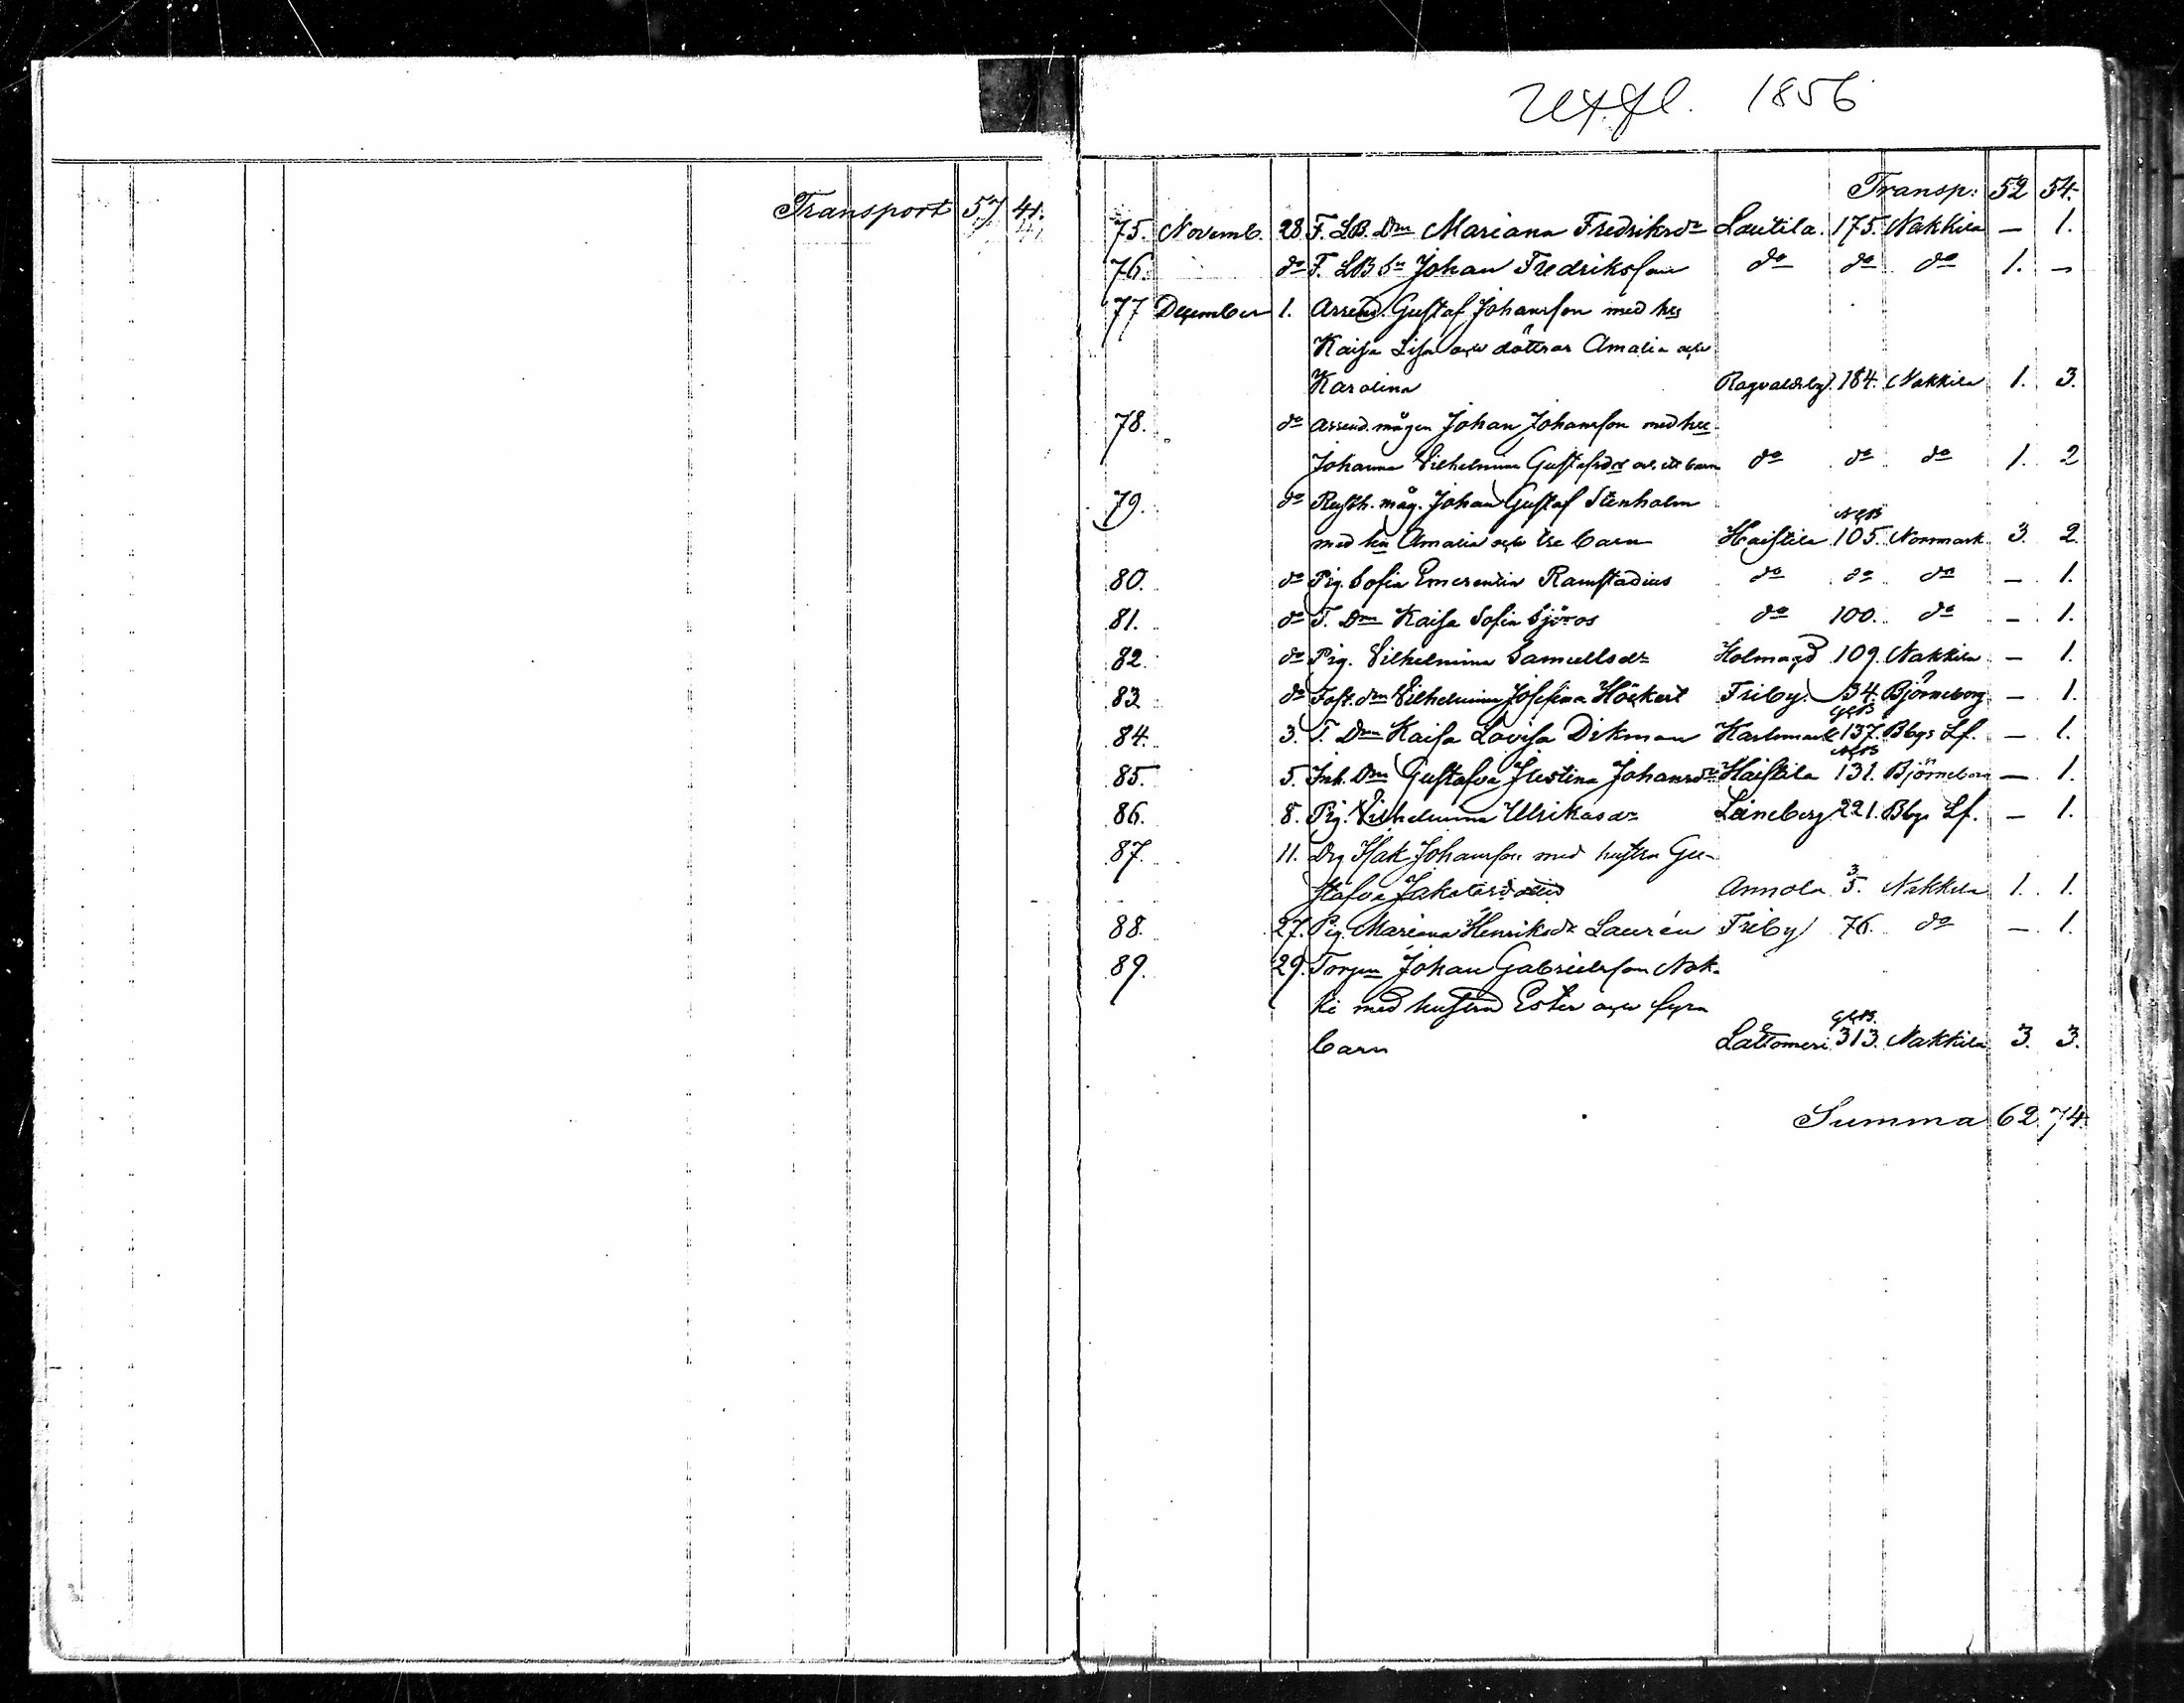 Utfl. 1856
Transport 57 41.
Transp: 52 54.
75. Novemb. 28 F. LB. Dr Mariana Fredriksdr Lautila. 175. Nakkila — 1.
76. do F. LB Sn Johan Fredriksson do do do 1. —
77 December 1. Arrend. Gustaf Johansson med hu
Kaisa Lisa och döttrar Amalia och
Karolina Ragvaldsby 184. Nakkila 1. 3.
78. do Arrend. mågen Johan Johansson med hu
Johanna Vilhelmina Gustafsdr o. ett barn do do do 1. 2
79. do Rusth. måg. Johan Gustaf Stenholm
med hu Amalia och tre barn Haistila 105. Norrmark 3. 2.
80. do Pig. Sofia Emerentia Ramstadius do do do — 1.
81. do T. Dr Kaisa Sofia Sjöros do 100. do — 1.
82. do Pig. Vilhelmina Samuelsdr 109. Nakkila — 1.
83 do Vilhelmina Josefina Höckert Friby. 34. Björneborg — 1.
84. 3. T. Dr Kaisa Lovisa Dikman 137. Bbgs Lf. — 1.
85. 5. Inh. Dr Gustafva Justina Johansdr Haistila 131. Björneborg — 1.
86. 8. Pig. Vilhelmina Ulrikasdr Leineberg 221. Bbgs Lf. — 1.
87. 11. Drg Isak Johansson med hustru Gu-
stafva Annola 3 5. Nakkila 1. 1.
88. 27. Pig. Mariana Henriksdr Laurén Friby 76. do — 1.
89. 29. Torpn Johan Gabrielsson Nok-
ki med hustrun Ester och fyra
barn Lattomeri 313. Nakkila 3. 3.
Summa 62. 74.